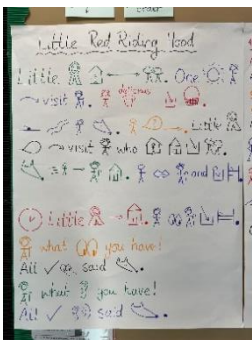 Little Red Riding Hood
Little One
visit delicious
Little
visit who
and
Little
what you have!
All said
what you have!
All said